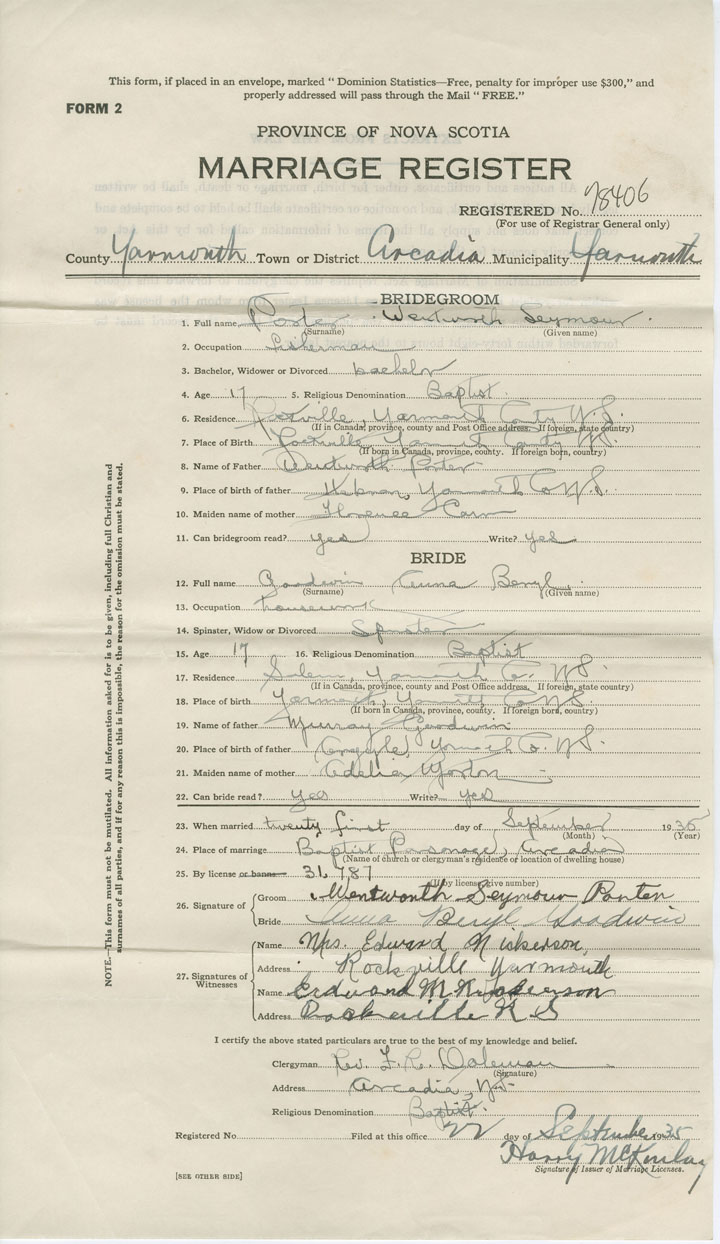 This form, if placed in an envelope, marked " Dominion Statistics—Free, penalty for improper use $300," and
properly addressed will pass through the Mail " FREE."
FORM 2
PROVINCE OF NOVA SCOTIA
MARRIAGE REGISTER
REGISTERED No. 78406
(For use of Registrar General only)
County Yarmouth Town or District Arcadia Municipality Yarmouth
BRIDEGROOM
1. Full name Porter Wentworth Seymour
(Surname) (Given name)
2. Occupation fisherman
3. Bachelor, Widower or Divorced bachelor
4. Age 17 5. Religious Denomination Baptist
6. Residence Rockville, Yarmouth County N.S.
(If in Canada, province, county and Post Office address. If foreign, state country)
7. Place of Birth Rockville Yarmouth County N.S.
(If born in Canada, province, county. If foreign born, country)
8. Name of Father Wentworth Porter
9. Place of birth of father Hebron, Yarmouth Co N.S.
10. Maiden name of mother Florence Cann
11. Can bridegroom read? yes Write? yes
BRIDE
12. Full name Goodwin Anna Beryl
(Surname) (Given name)
13. Occupation housework
14. Spinster, Widow or Divorced Spinster
15. Age 17 16. Religious Denomination Baptist
17. Residence Salem, Yarmouth Co. N.S.
(If in Canada, province, county and Post Office address. If foreign, state country)
18. Place of birth Yarmouth, Yarmouth Co N.S.
(If born in Canada, province, county. If foreign born, country)
19. Name of father Murray Goodwin
20. Place of birth of father Argyle, Yarmouth Co. N.S.
21. Maiden name of mother Adelia
22. Can bride read? yes Write? yes
23. When married twenty first day of September 1935
(Month) (Year)
24. Place of marriage Baptist Parsonage, Arcadia
(Name of church or clergyman's residence or location of dwelling house)
25. By license or banns 31,787
(If by license give number)
26. Signature of Groom Wentworth Seymour Porter
Bride Anna Beryl Goodwin
27. Signatures of Witnesses
Name Mrs. Edward Nickerson,
Address Rockville Yarmouth
Name Edward M Nickerson
Address Rockville N S
NOTE.—This form must not be mutilated. All information asked for is to be given, including full Christian and
surnames of all parties, and if for any reason this is impossible, the reason for the omission must be stated.
I certify the above stated particulars are true to the best of my knowledge and belief.
Clergyman Rev. F. R.
(Signature)
Address Arcadia, N.S.
Religious Denomination Baptist
Registered No. Filed at this office 22 day of September 1935
Harry McKinlay
Signature of Issuer of Marriage Licenses.
[SEE OTHER SIDE]